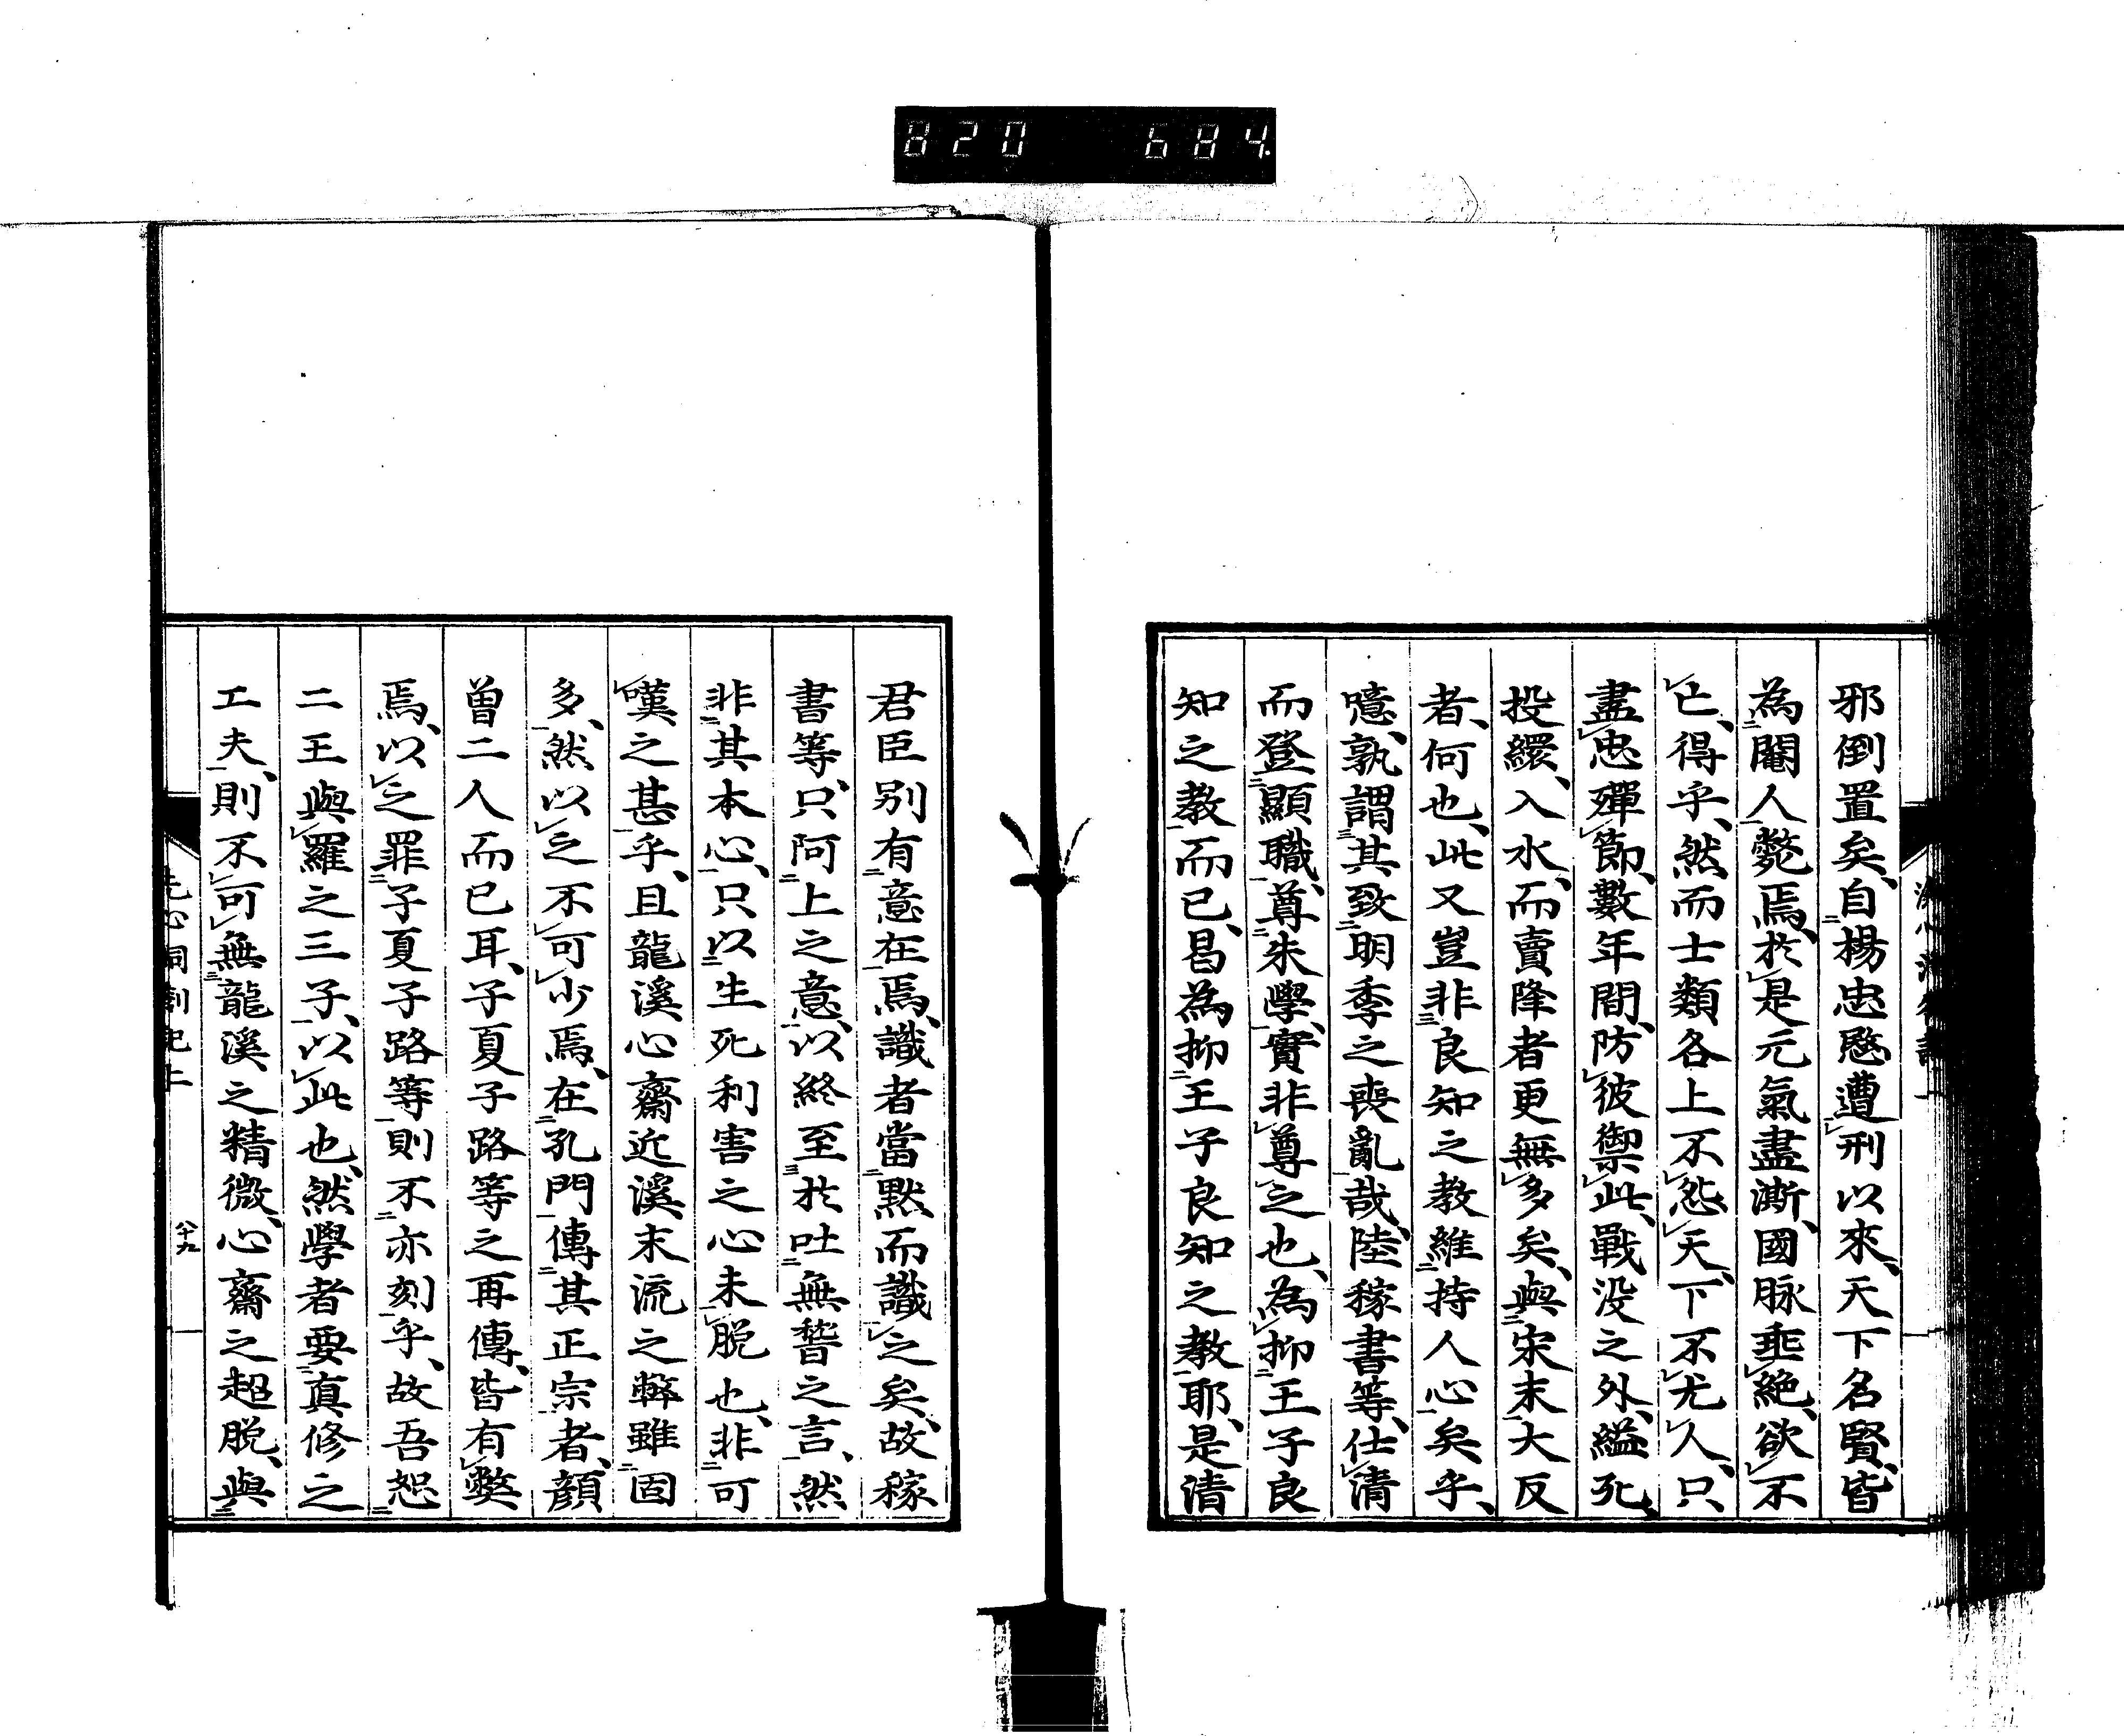 820 684
邪倒置矣、自楊忠愍遭刑以來、天下名賢、皆
為閹人斃焉、於是元氣盡澌、國脉垂絶、欲不
亡、得乎、然而士類各上不怨天、下不尤人、只、
盡忠殫節、數年間、防彼禦此、戰没之外、縊死、
投繯、入水、而賣降者更無多矣、與宋末大反
者、何也、此又豈非良知之教維持人心矣乎、
噫、孰謂其致明季之喪亂哉、陸稼書等、仕清
而登顯職、尊朱學、實非尊之也、為抑王子良
知之教而已、曷為抑王子良知之教耶、是清
君臣别有意在焉、識者當默而識之矣、故稼
書等、只阿上之意、以終至於吐無稽之言、然
非其本心、只以生死利害之心未脱也、非可
嘆之甚乎、且龍溪心齋近溪末流之弊雖固
多、然以之不可少焉、在孔門傳其正宗者、顔
曽二人而已耳、子夏子路等之再傳、皆有弊
焉、以之罪子夏子路等則不亦刻乎、故吾恕
二王與羅之三子、以此也、然學者要真修之
工夫、則不可無龍溪之精微、心齋之超脱、與
八十九